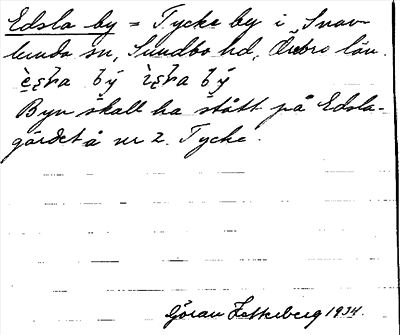 Edsla by = Tycke by i Snav-
lunda sn, Sundbo hd, Örebro län.
by by
Byn skall ha stått på Edsla-
gärdet å nr 2. Tycke.
Göran Zetterberg 1934.